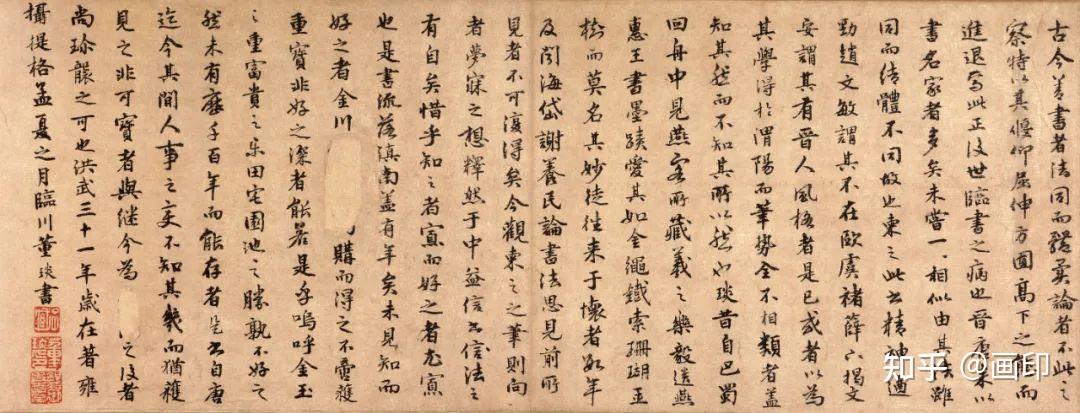 古今善書者法同而體異論者不此之
察特以其偃仰屈伸方圓高下之而
進退焉此正後世臨書之病也晉唐來以
書名家者多矣未嘗一一相似由其法雖
同而結體不同故也柬之此書精神遒
勁趙文敏謂其不在歐虞褚薛下揭文
安謂其有晉人風格者是已或者以為
其學得於渭陽而筆勢全不相類者蓋
知其然而不知其所以然也琰昔自巴蜀
回舟中見燕客所藏羲之樂毅遺燕
惠王書墨蹟愛其如金繩鐵索珊瑚玉
樹而莫名其妙徒往來于懷者數年
及閱海岱謝養民論書法思見前所
見者不可復得矣今觀柬之之筆則向
者夢寐之想釋然于中益信書法之
有自矣惜乎知之者寡而好之者尤寡
也是書流落滇南蓋有年矣未見知而
好之者金川 購而得之不啻獲
重寶非好之深者能若是乎嗚呼金玉
之重富貴之樂田宅園池之勝孰不好之
然未有歷千百年而能存者是書自唐
迄今其間人事之變不知其幾而猶獲
見之非可寶者與繼今為 之後者
尚珍襲之可也洪武三十一年歲在著雍
攝提格孟夏之月臨川董琰書
知乎 @画印